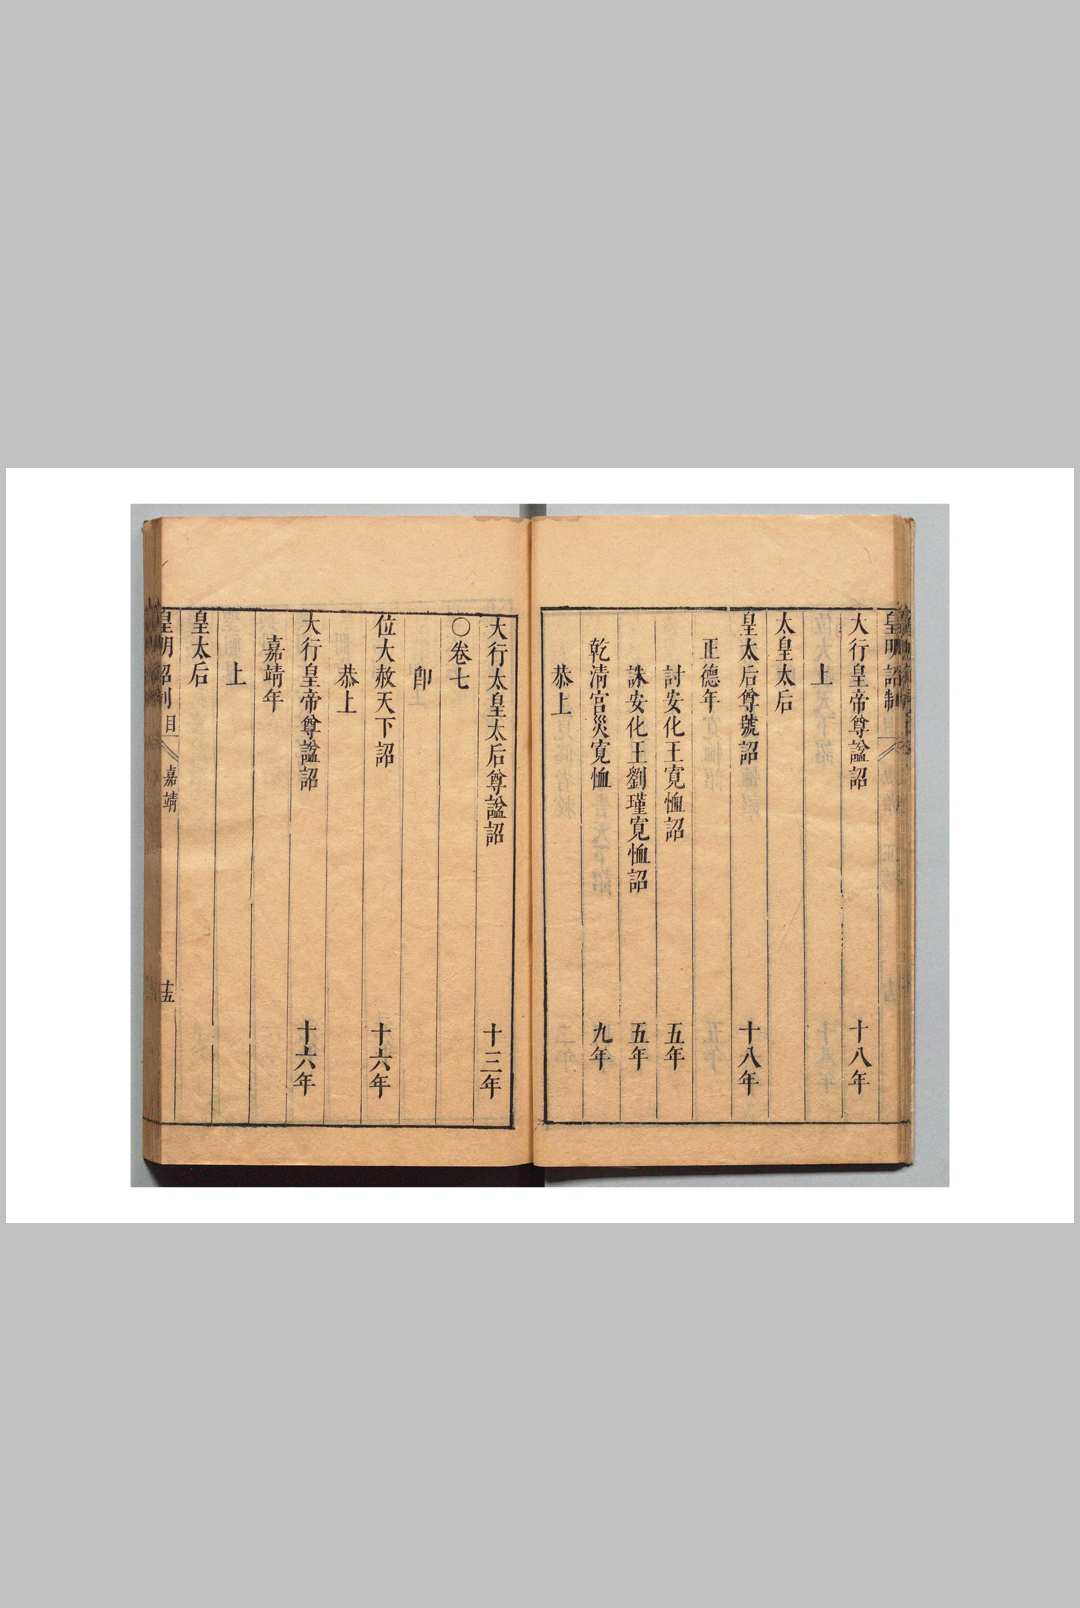 皇明詔制
大行皇帝尊諡詔 十八年
上
太皇太后
皇太后尊號詔 十八年
正德年
討安化王寬恤詔 五年
誅安化王劉瑾寬恤詔 五年
乾清宮災寬恤 九年
恭上
大行太皇太后尊諡詔 十三年
○卷七
卽
位大赦天下詔 十六年
恭上
大行皇帝尊諡詔 十六年
嘉靖年
上
皇太后
皇明詔制 目 嘉靖 十五